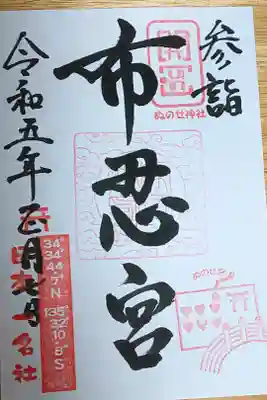 参詣
開運
ぬのせ神社
布忍宮
令和五年正月
34°
34'
44"
7"
N
135°
32'
10"
8"
S
名社